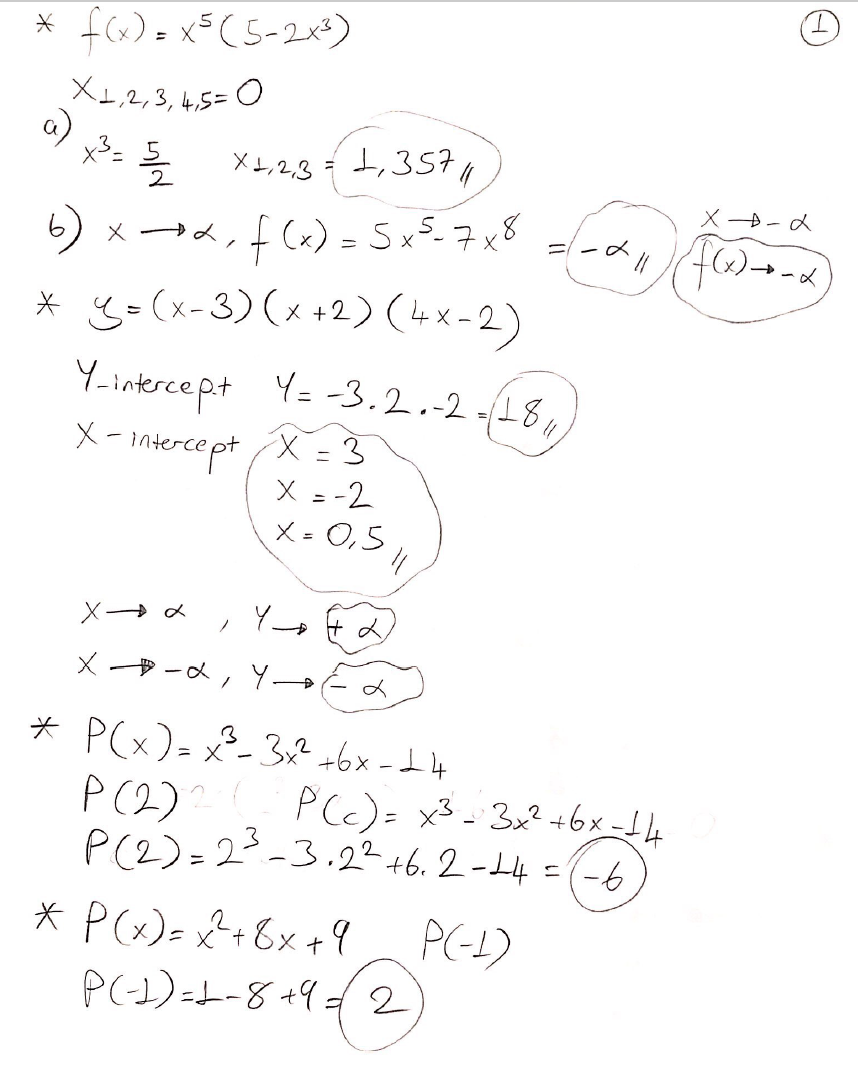 * f(x) = x⁵(5-2x³) ①
x1,2,3,4,5 = 0
a)
x³ = 5/2 x1,2,3 = 1,357 //
b) x → α, f(x) = 5x⁵ - 7x⁸ = -α // x → -α
f(x) → -α
* y = (x-3)(x+2)(4x-2)
Y-intercept Y = -3.2.-2 = 18 //
X-intercept X = 3
X = -2
X = 0,5 //
X → α, Y → +α
X → -α, Y → -α
* P(x) = x³ - 3x² + 6x - 14
P(2) P(c) = x³ - 3x² + 6x - 14
P(2) = 2³ - 3.2² + 6.2 - 14 = -6
* P(x) = x² + 8x + 9 P(-1)
P(-1) = 1 - 8 + 9 = 2